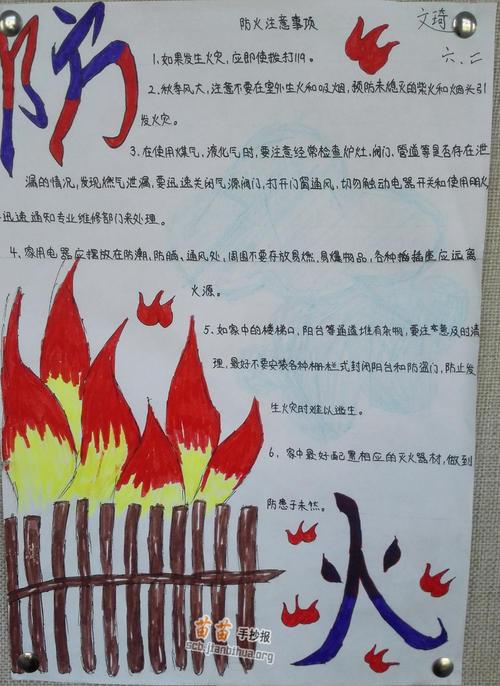 防
防火注意事项
文琦
六、二
1.如果发生火灾，应即使拨打119。
2、秋季风大，注意不要在室外生火和吸烟，预防未熄灭的柴火和烟头引
发火灾。
3、在使用煤气，液化气时，要注意经常检查炉灶、阀门、管道等是否存在泄
漏的情况，发现燃气泄漏，要迅速关闭气源阀门，打开门窗通风，切勿触动电器开关和使用明火
迅速通知专业维修部门来处理。
4、家用电器应摆放在防潮、防晒、通风处，周围不要存放易燃、易爆物品，各种插座应远离
火源。
5、如家中的楼梯口，阳台等通道堆有杂物，要注意及时清
理，最好不要安装各种栅栏式封闭阳台和防盗门，防止发
生火灾时难以逃生。
6、家中最好配置相应的灭火器材，做到
防患于未然。
火
苗苗手抄报
scb.jianbihua.org